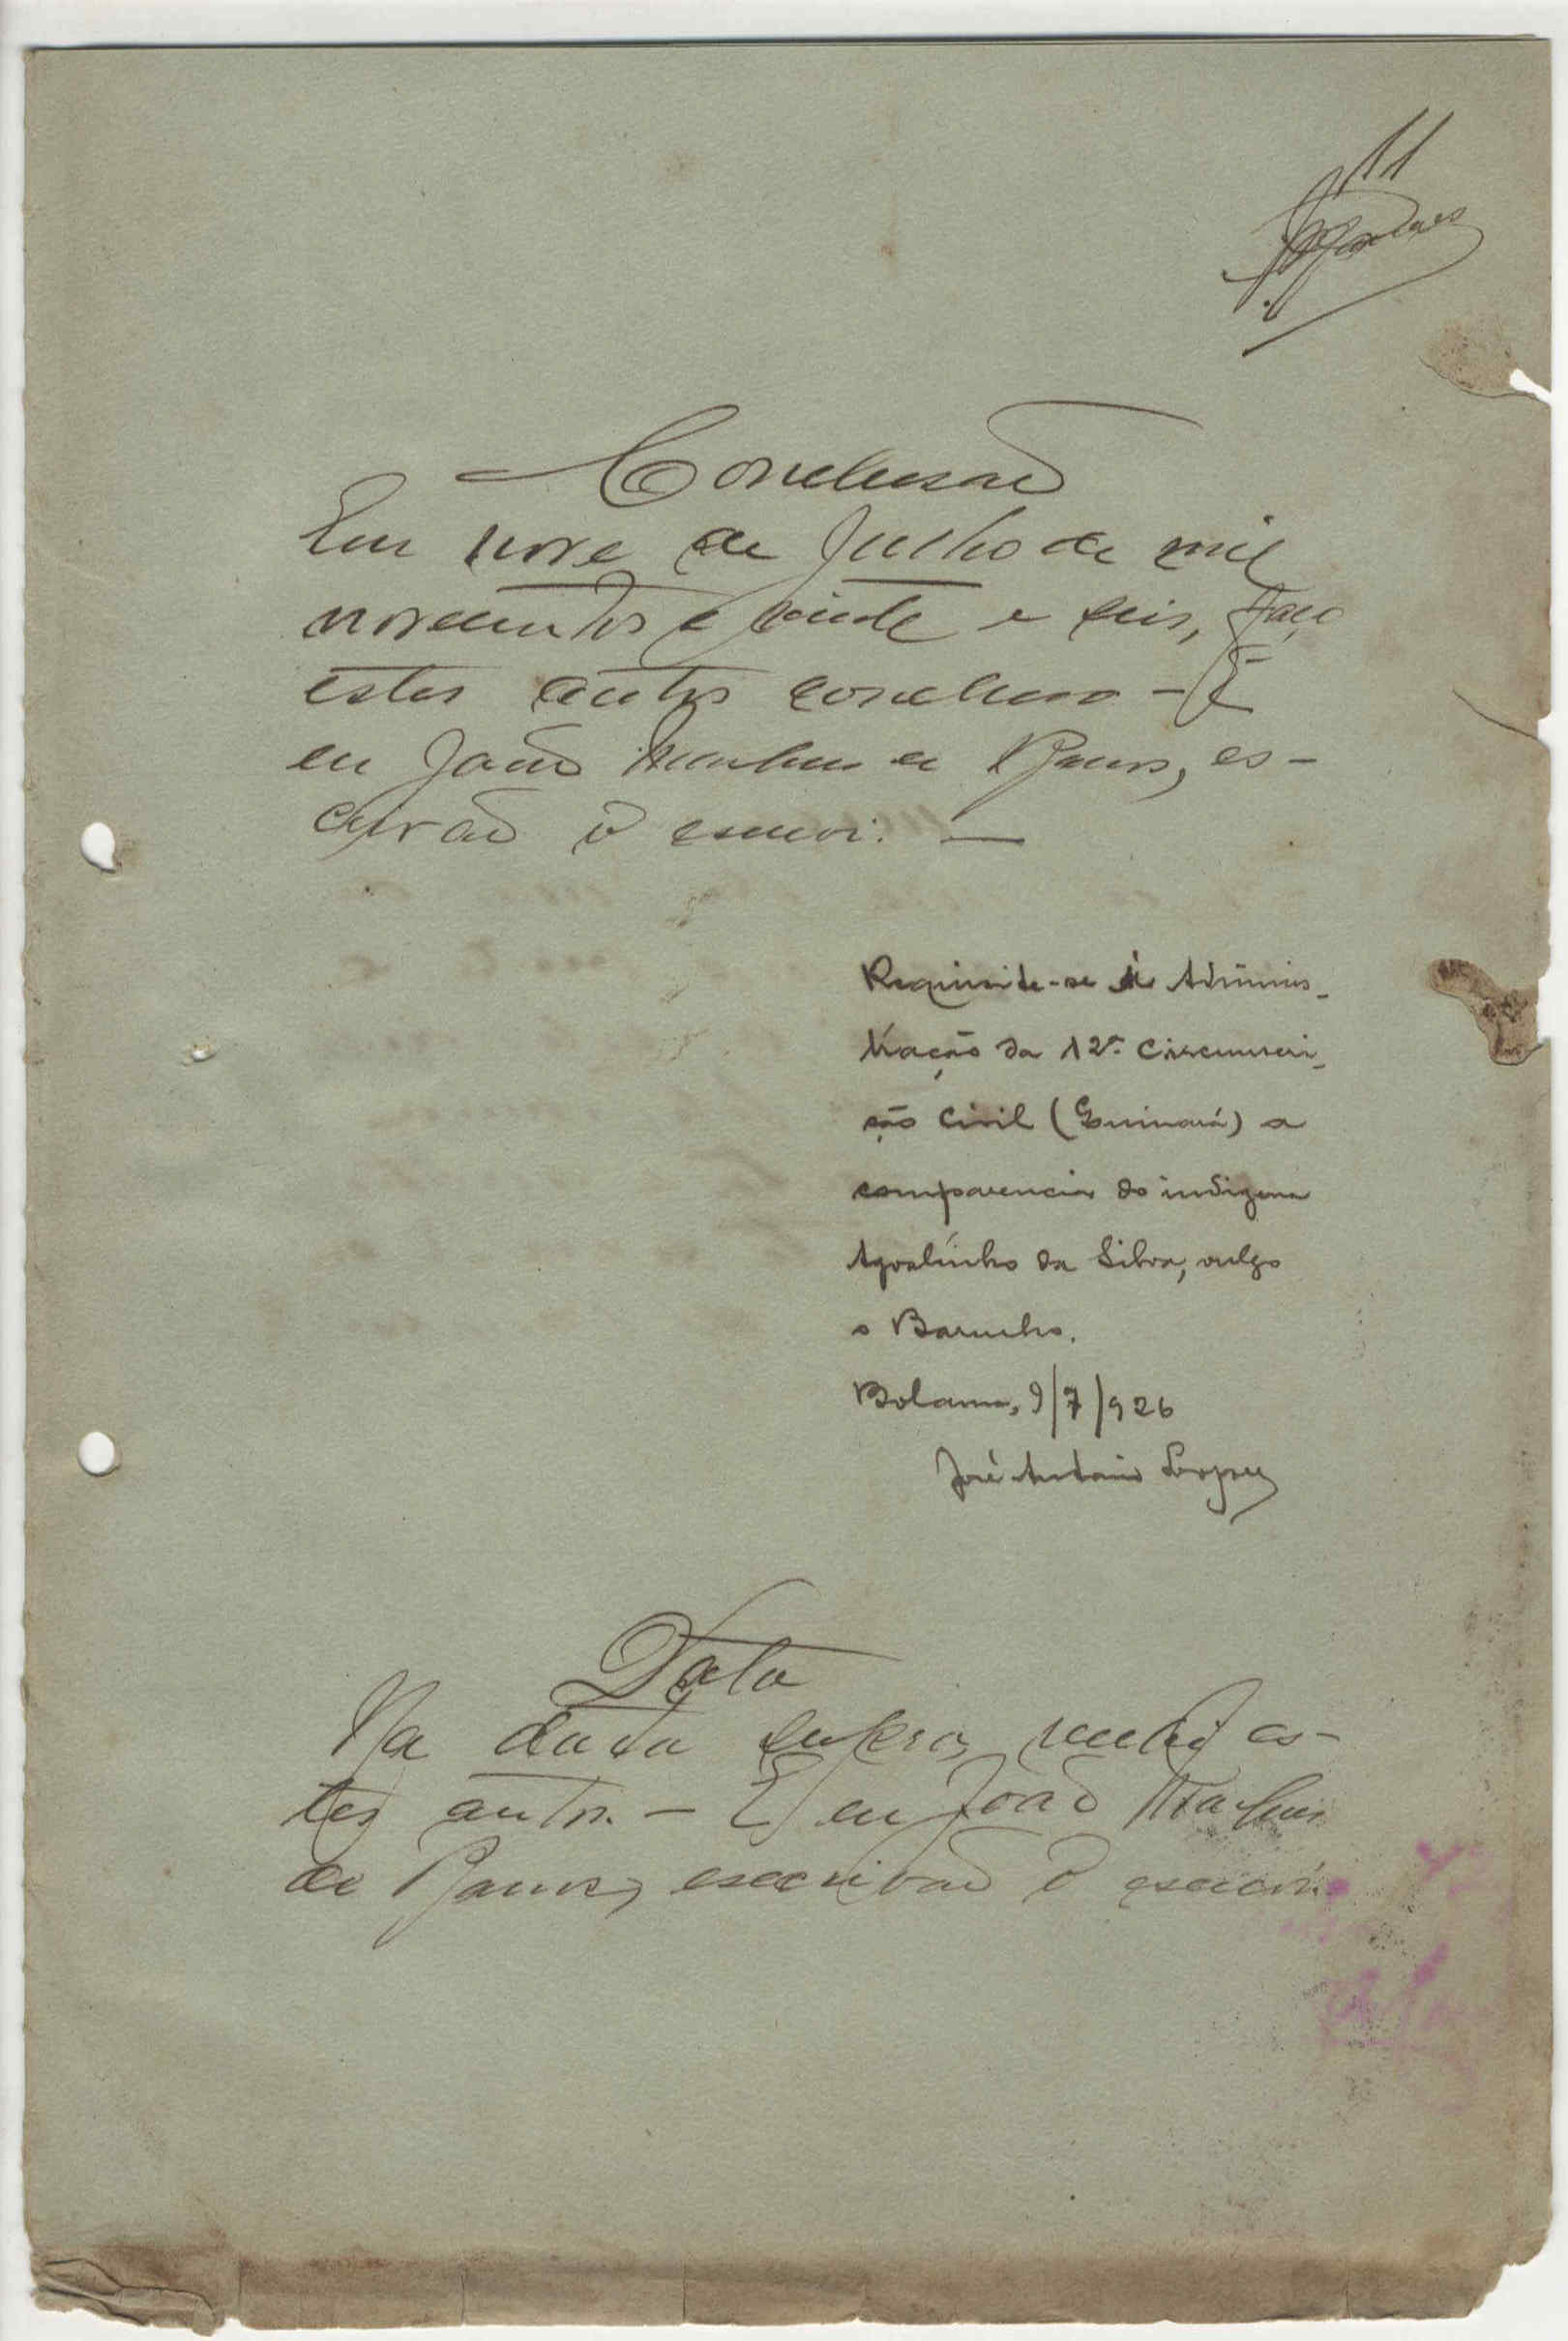 11
Conclusão
Em nove de Julho de mil
novecentos e vinte e seis, faço
estes autos concluso - E
eu João de Barros, es-
crivão o escrevi. —
Requisite-se á Adminis-
tração da 12ª Circunscri-
ção Civil (Guinará) a
comparencia do indigena
Agostinho da Silva, vulgo
o Barucho.
Bolama, 9/7/926
José Antonio Lopes
Data
Na data supra, recebi es-
tes autos. - E eu João
de Barros, escrivão o escrevi.